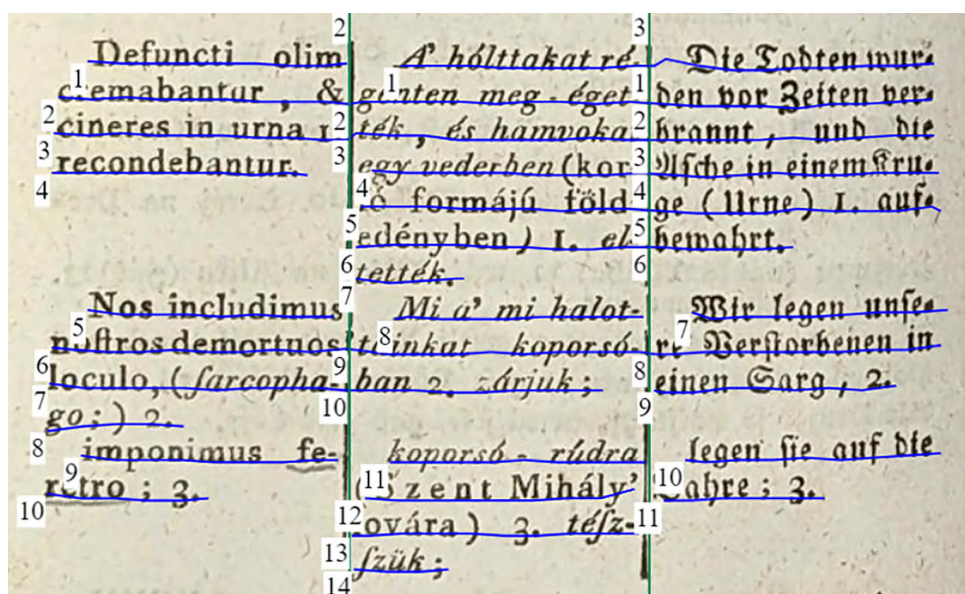 Defuncti olim
cremabantur, &
cineres in urna 1
recondebantur.
Nos includimus
noſtros demortuos
loculo, (ſarcopha-
go;) 2.
imponimus fe-
retro; 3.
A' hólttakat ré-
genten meg-éget
ték, és hamvoka
egy vederben (kor
ſó formájú föld
edényben) 1. el
tették.
Mi a' mi halot-
tainkat koporsó-
ban 2. zárjuk;
koporsó-rúdra
(Szent Mihály'
lovára) 3. téſz-
ſzük;
Die Todten wur-
den vor Zeiten ver-
brannt, und die
Aſche in einem Kru-
ge (Urne) 1. auf-
bewahrt.
Wir legen unſe-
re Verſtorbenen in
einen Sarg, 2.
legen ſie auf die
Bahre; 3.